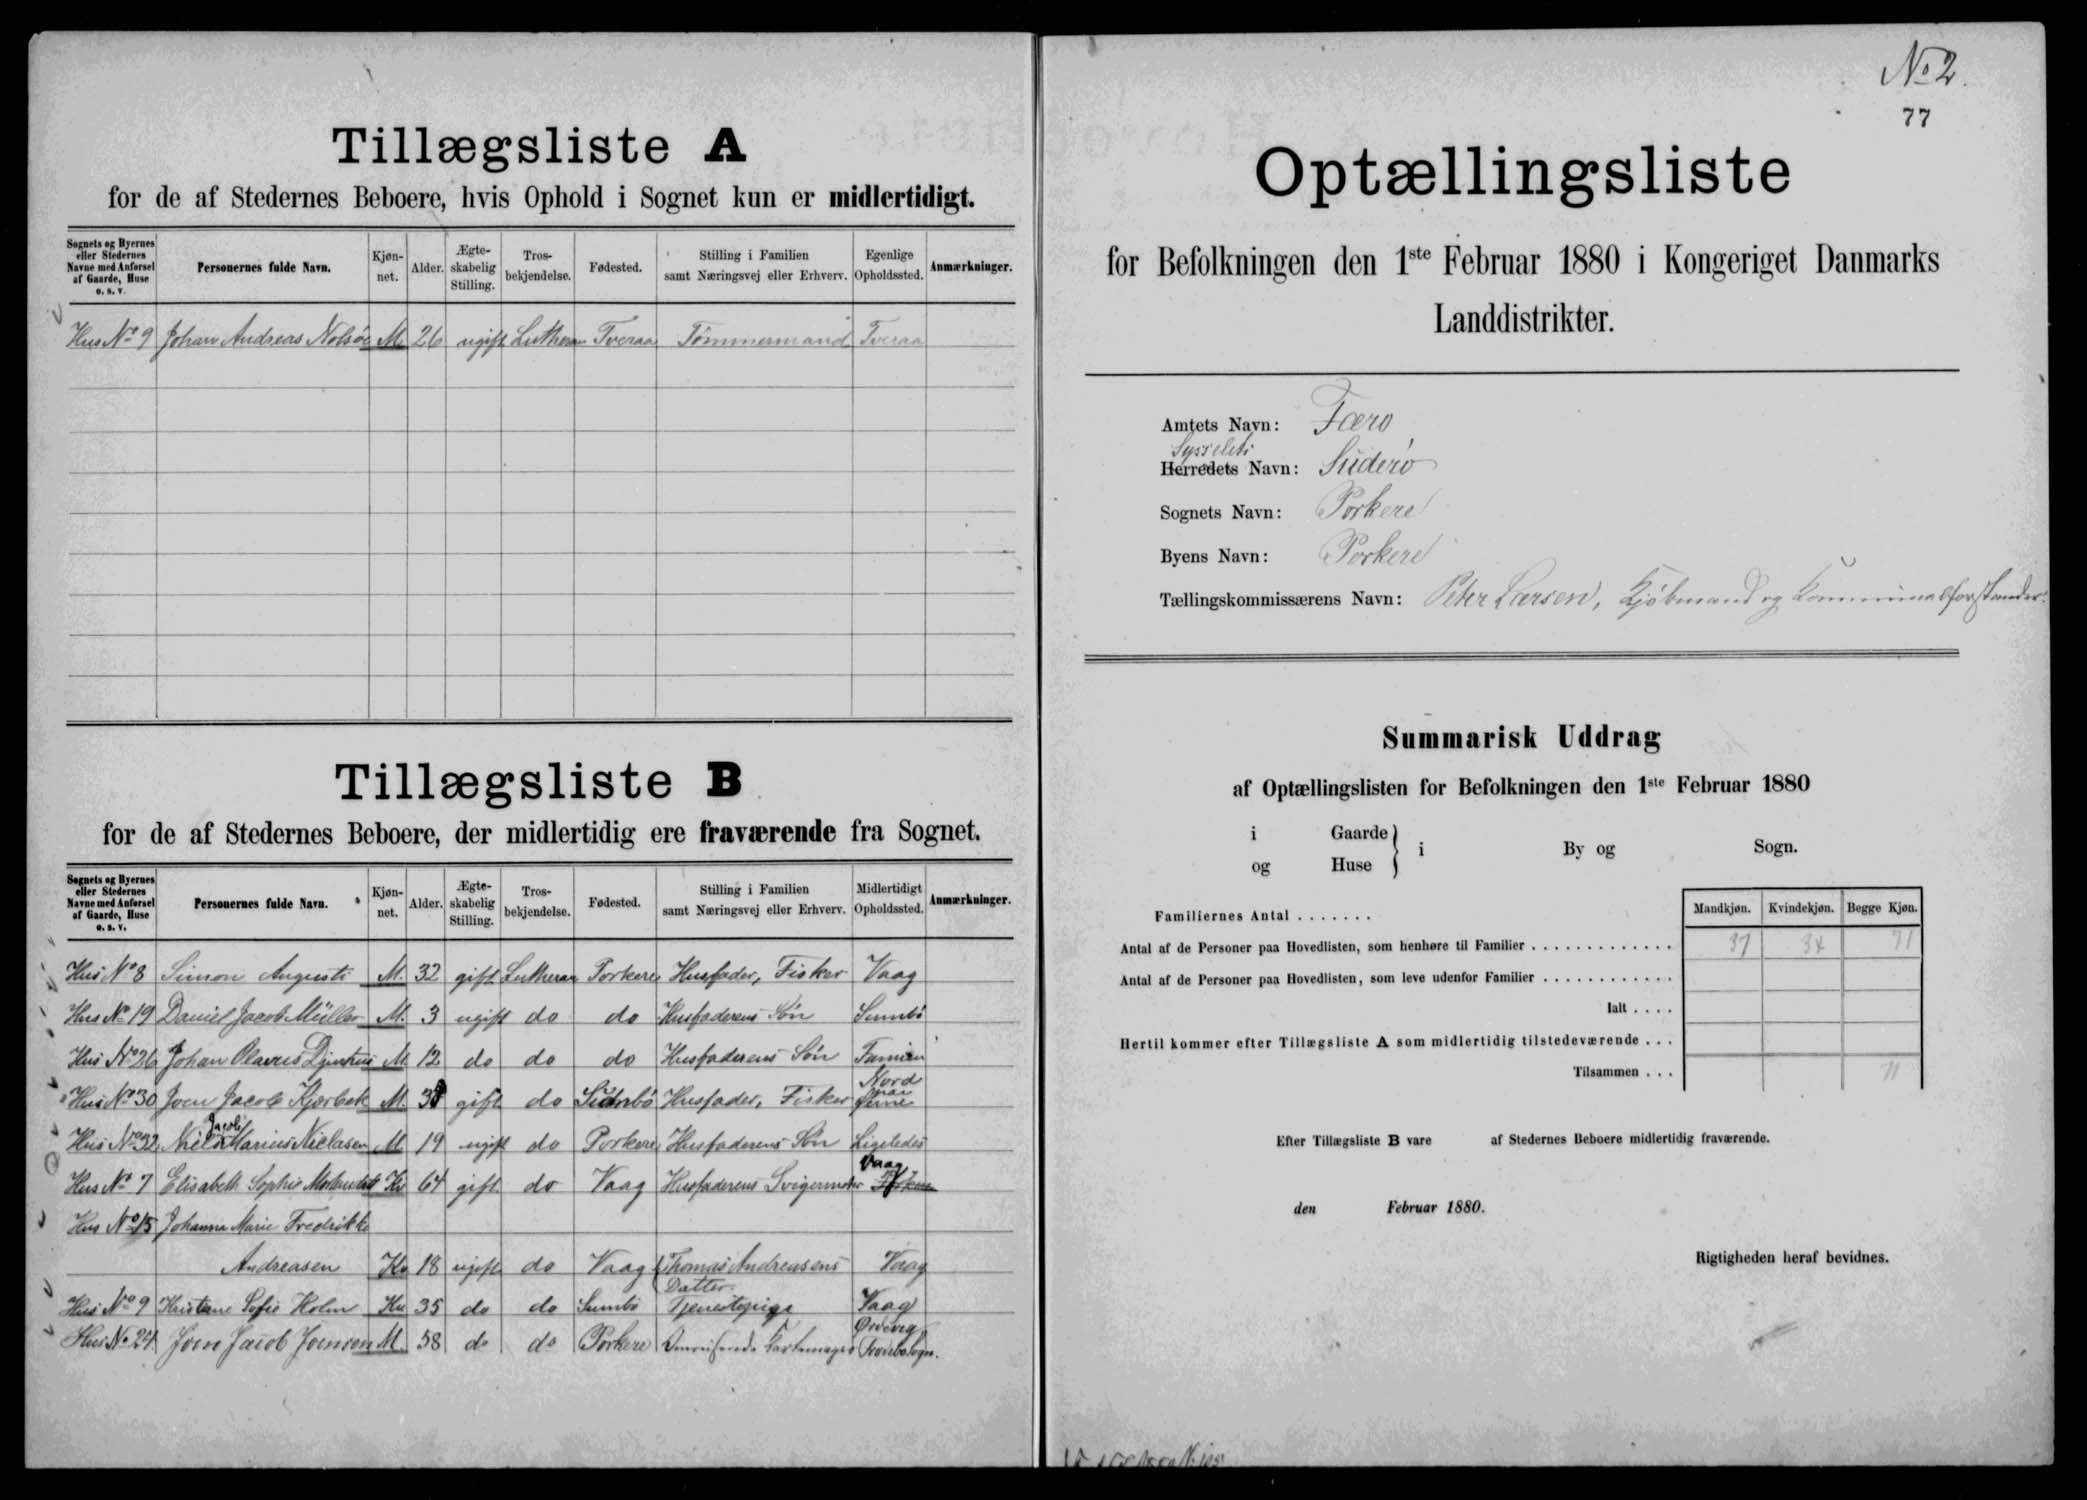 Tillægsliste A
for de af Stedernes Beboere, hvis Ophold i Sognet kun er midlertidigt.
Sognets og Byernes eller Stedernes Navne med Anførsel af Gaarde, Huse o. s. v. Personernes fulde Navn. Kjøn-net. Alder. Ægte-skabelig Stilling. Tros-bekjendelse. Fødested. Stilling i Familien samt Næringsvej eller Erhverv. Egenlige Opholdssted. Anmærkninger.
Hus No 9 Johan Andreas Nolsöe M 26 ugift Luthersn Tveraa Tömmermand Tveraa
Tillægsliste B
for de af Stedernes Beboere, der midlertidig ere fraværende fra Sognet.
Sognets og Byernes eller Stedernes Navne med Anførsel af Gaarde, Huse o. s. v. Personernes fulde Navn. Kjøn-net. Alder. Ægte-skabelig Stilling. Tros-bekjendelse. Fødested. Stilling i Familien samt Næringsvej eller Erhverv. Midlertidigt Opholdssted. Anmærkninger.
Hus No 8 Simon Augusti M. 32 gift Lutheran Porkere Husfader, Fisker Vaag
Hus No 19 Daniel Jacob Müller M. 3 ugift do do Husfaderens Søn Sumbö
Hus No 26 Johan Olavus Djurhus M 12 do do do Husfaderens Søn Famien
Hus No 30 Joen Jacob Kjærbek M. gift do Sumbö Husfader, Fisker Nord
Hus No 32 Niels Jacob Marius Nielasen M 19 ugift do Porkere Husfaderens Søn Ligeledes
Hus No 7 Elisabeth Sophie Kv 64 gift do Vaag Husfaderens Svigermoder Vaag
Hus No 15 Johanna Marie Fredrikke
Andreasen Kv 18 ugift do Vaag Thomas Andreasens Datter Vaag
Hus No 9 Kristane Sofie Holm Kv 35 do do Sumbö Tjenestepige Vaag
Hus No 24 Joen Jacob Joensen M. 58 do do Porkere Ørdevig
No 2.
77
Optællingsliste
for Befolkningen den 1ste Februar 1880 i Kongeriget Danmarks
Landdistrikter.
Amtets Navn: Færo
Sysselets
Herredets Navn: Suderö
Sognets Navn: Porkere
Byens Navn: Porkere
Tællingskommissærens Navn: Peter Larsen, Kjöbmand og Kommunalforstander.
Summarisk Uddrag
af Optællingslisten for Befolkningen den 1ste Februar 1880
i Gaarde
og Huse } i By og Sogn.
Mandkjøn. Kvindekjøn. Begge Kjøn.
Familiernes Antal . . . . . . .
Antal af de Personer paa Hovedlisten, som henhøre til Familier . . . . . . . . . . . . . 37 34 71
Antal af de Personer paa Hovedlisten, som leve udenfor Familier . . . . . . . . . . . .
Ialt . . . .
Hertil kommer efter Tillægsliste A som midlertidig tilstedeværende . . .
Tilsammen . . . 71
Efter Tillægsliste B vare af Stedernes Beboere midlertidig fraværende.
den Februar 1880.
Rigtigheden heraf bevidnes.